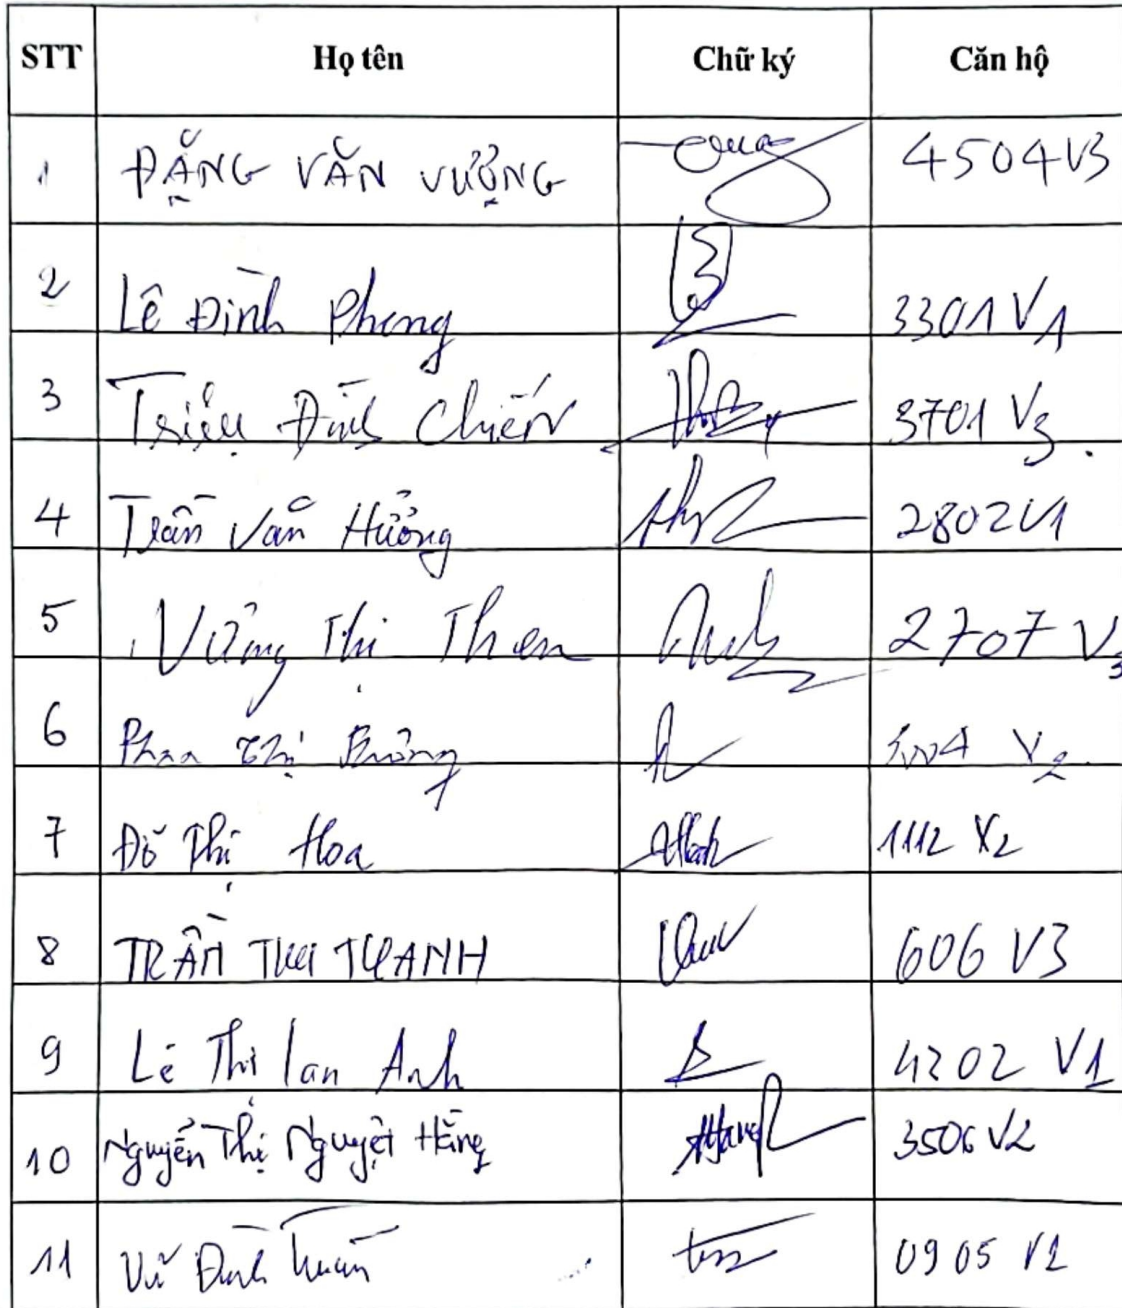 STT Họ tên Chữ ký Căn hộ
1 ĐẶNG VĂN VƯỢNG 4504 V3
2 Lê Đình Phong 3301 V1
3 Triệu Đình Chiến 3701 V3
4 Trần Văn Hưởng 2802 V1
5 Thị Thơn 2707 V3
6 Phan Thị V2
7 Đỗ Thị Hoa 1112 V2
8 TRẦN THỊ THANH 606 V3
9 Lê Thị Lan Anh 4202 V1
10 Nguyễn Thị Nguyệt Hằng 3506 V2
11 Vũ Đình 0905 V2